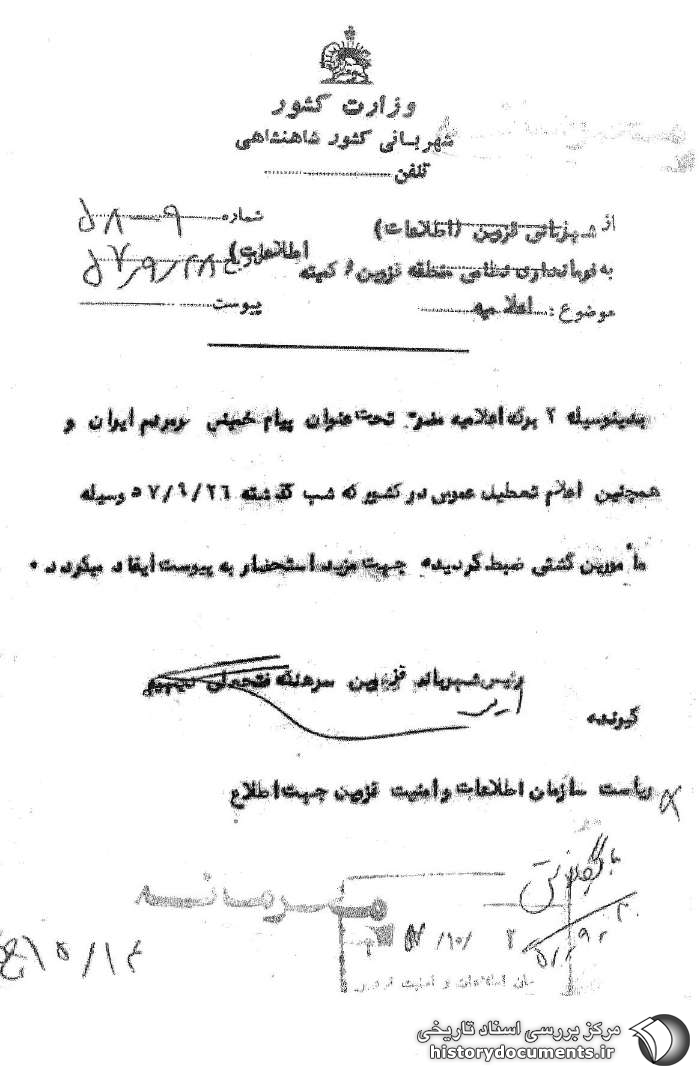 وزارت کشور
شهربانی کشور شاهنشاهی
تلفن
شماره
از شهربانی قزوین (اطلاعات)
به فرمانداری نظامی منطقه قزوین / کمیته اطلاعات)
تاریخ ۵۷/۹/۲۸
موضوع : اعلامیه
پیوست
بدینوسیله ۲ برگ اعلامیه مضره تحت عنوان پیام خمینی بمردم ایران و
همچنین اعلام تعطیل عمومی در کشور که شب گذشته ۵۷/۹/۲٦ وسیله
مأمورین گشتی ضبط گردیده جهت مزید استحضار به پیوست ایفاد میگردد ۰
رئیس شهربانی قزوین سرهنگ فتحعلی
گیرنده
ریاست سازمان اطلاعات و امنیت قزوین جهت اطلاع
محرمانه
اطلاعات و امنیت قزوین
مرکز بررسی اسناد تاریخی
historydocuments.ir